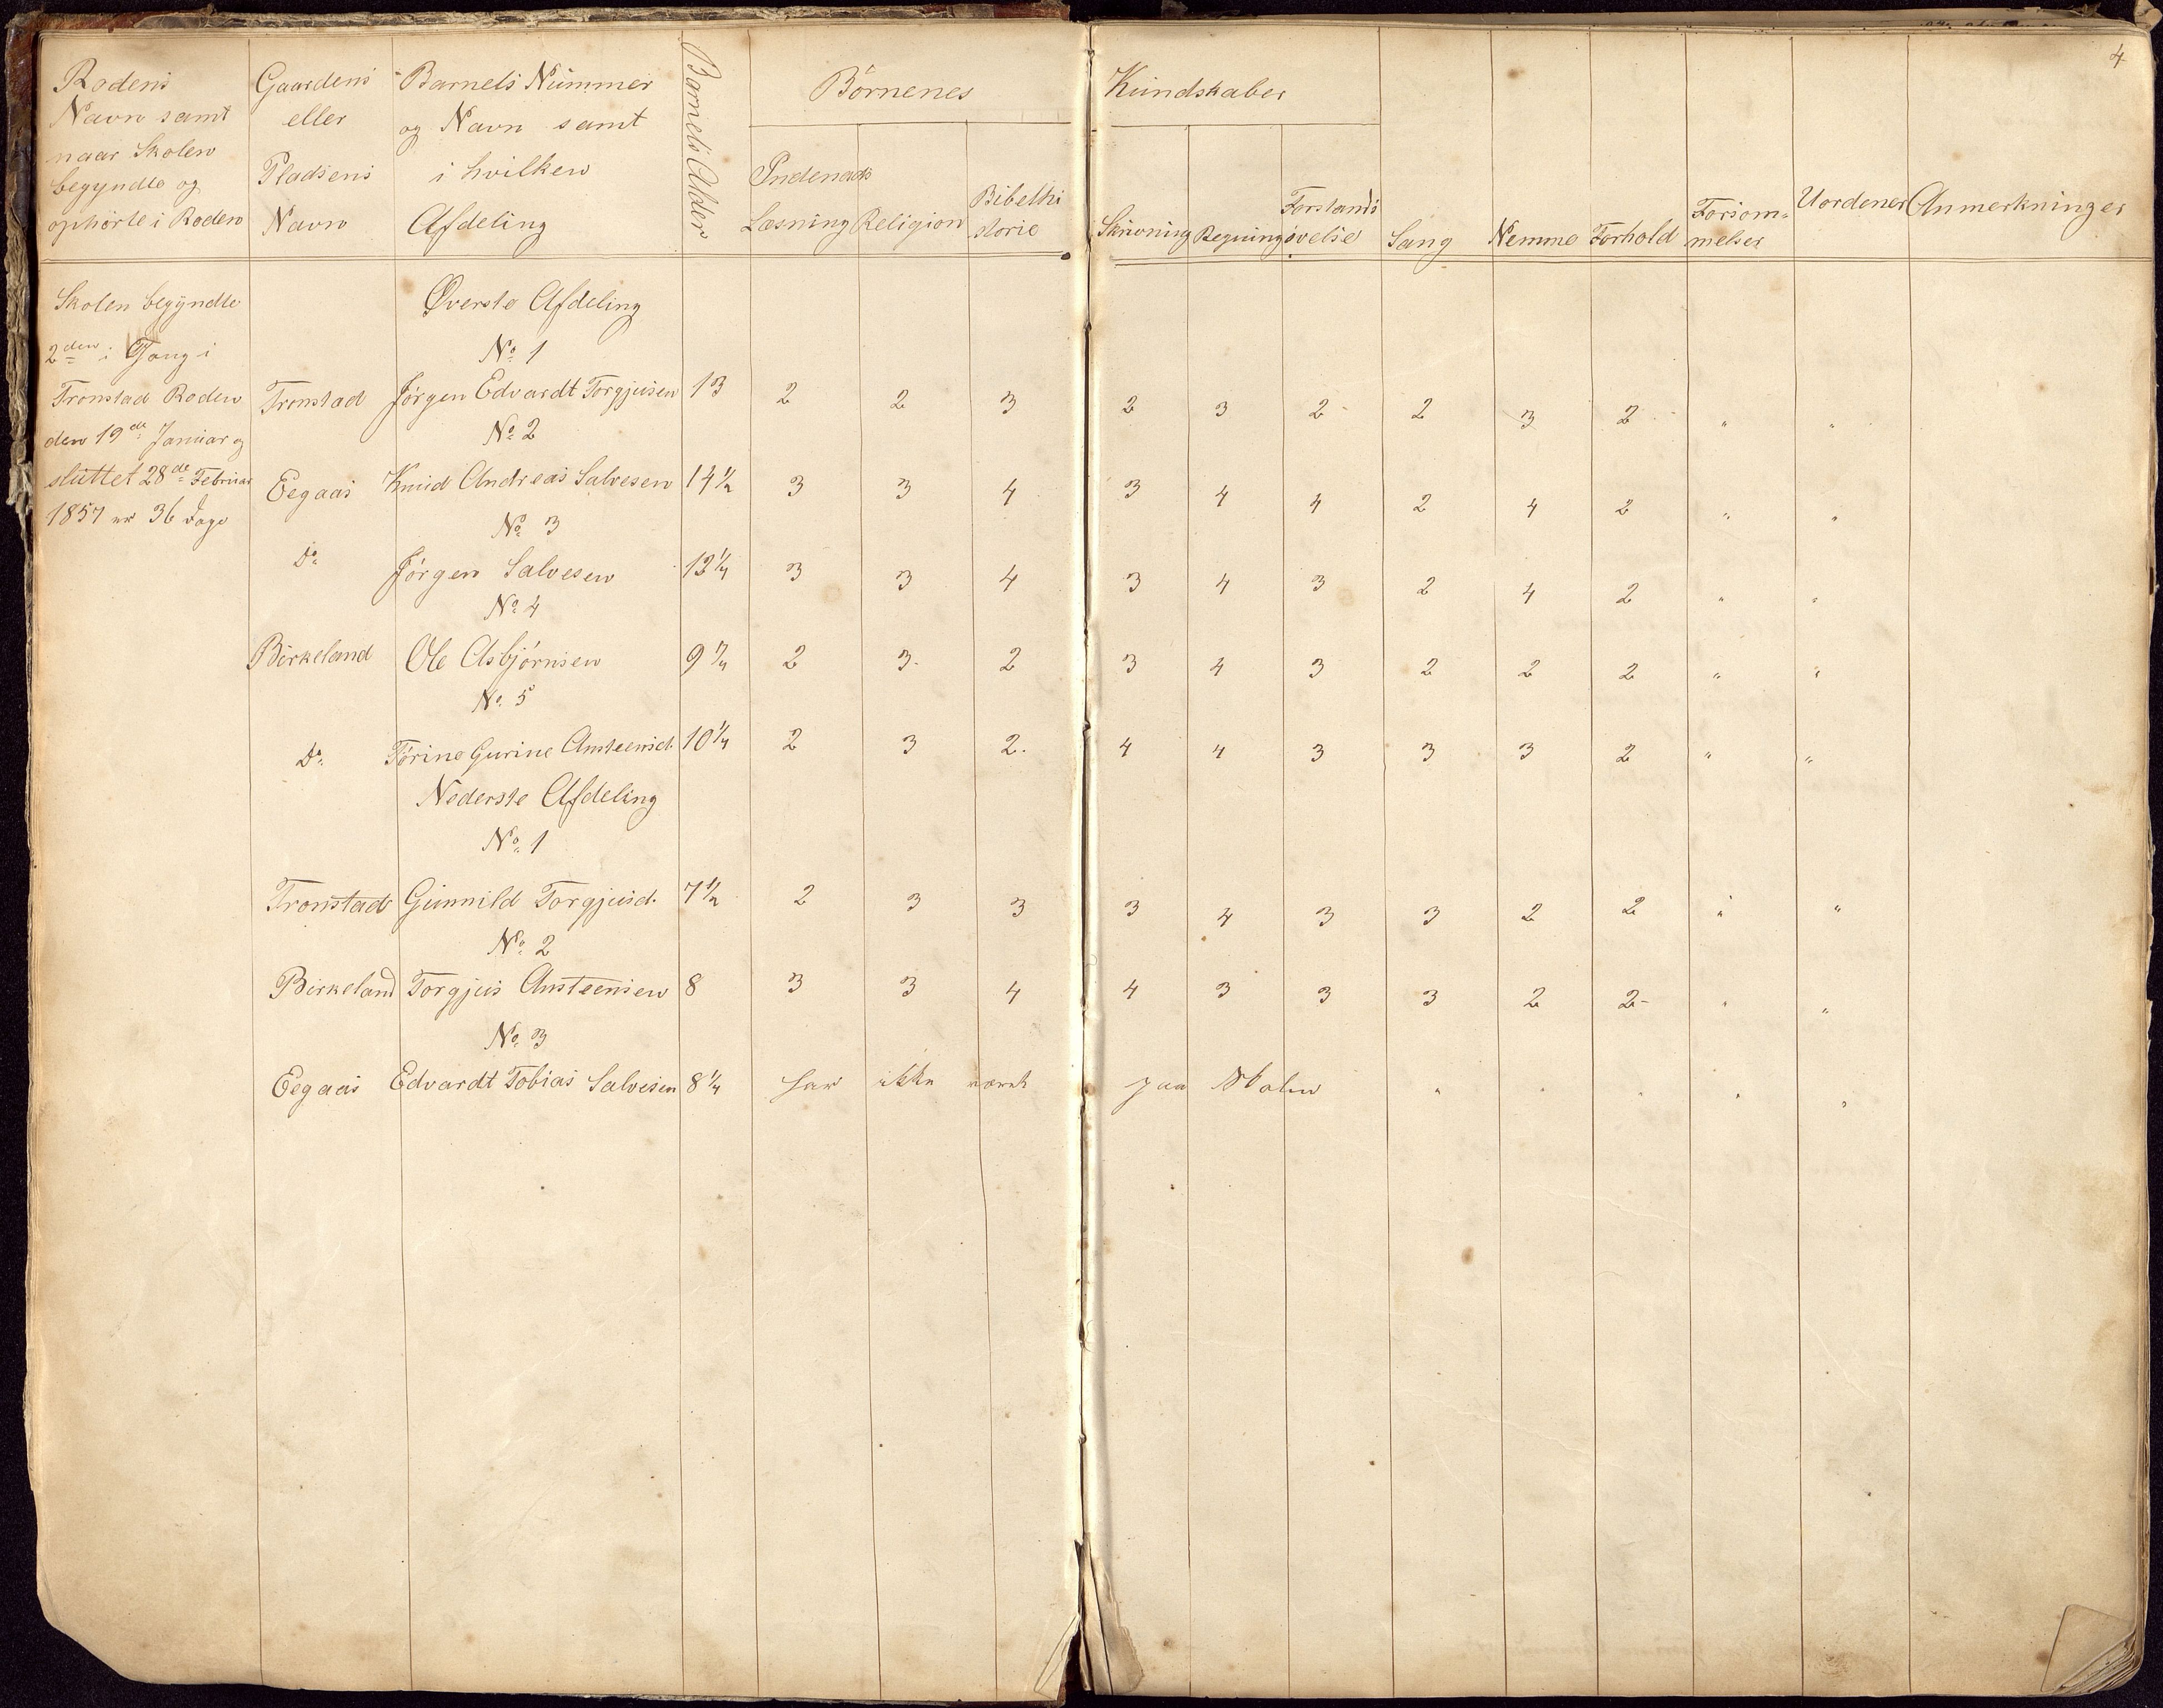 4
Rodens
Navn samt
naar Skolen
begyndte og
ophørte i Roden
Gaardens
eller
Pladsens
Navn
Barnets Nummer
og Navn samt
i hvilken
Afdeling
Barnets Alder
Børnenes Kundskaber
Indenads
Læsning
Religion
Bibelhi
storie
Skrivning
Regning
Forstands
øvelse
Sang
Nemme
Forhold
Forsøm=
melser
Uordener
Anmerkninger
Skolen begyndte
2den Gang i
Tronstad Roden
den 19de Januar og
sluttet 28de Februar
1857 36 Dage
Øverste Afdeling
No 1
Tronstad Jørgen Edvardt Torgjusen 13 2 2 3 2 3 2 2 3 2 " "
No 2
Eegaas Knud Andreas Salvesen 14 1/2 3 3 4 3 4 4 2 4 2 " "
No 3
Do Jørgen Salvesen 12 1/4 3 3 4 3 4 3 2 4 2 " "
No 4
Birkeland Ole Asbjørnsen 9 3/4 2 3 2 3 4 3 2 2 2 " "
No 5
Do Tørine Gurine Ansteensd. 10 1/4 2 3 2. 4 4 3 3 3 2 " "
Nederste Afdeling
No 1
Tronstad Gunnild Torgjusd. 7 1/2 2 3 3 3 4 3 3 2 2 " "
No 2
Birkeland Torgjus Ansteensen 8 3 3 4 4 3 3 3 2 2 " "
No 3
Eegaas Edvardt Tobias Salvesen 8 1/4 har ikke været paa Skolen " " " " "